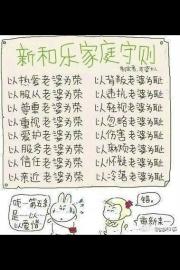 新和乐家庭守则
以热爱老婆为荣 以背叛老婆为耻
以服从老婆为荣 以违抗老婆为耻
以尊重老婆为荣 以轻视老婆为耻
以重视老婆为荣 以忽略老婆为耻
以爱护老婆为荣 以伤害老婆为耻
以服务老婆为荣 以麻烦老婆为耻
以信任老婆为荣 以怀疑老婆为耻
以亲近老婆为荣 以冷落老婆为耻
第五条
是一以
以爱惜
错。
重新来一